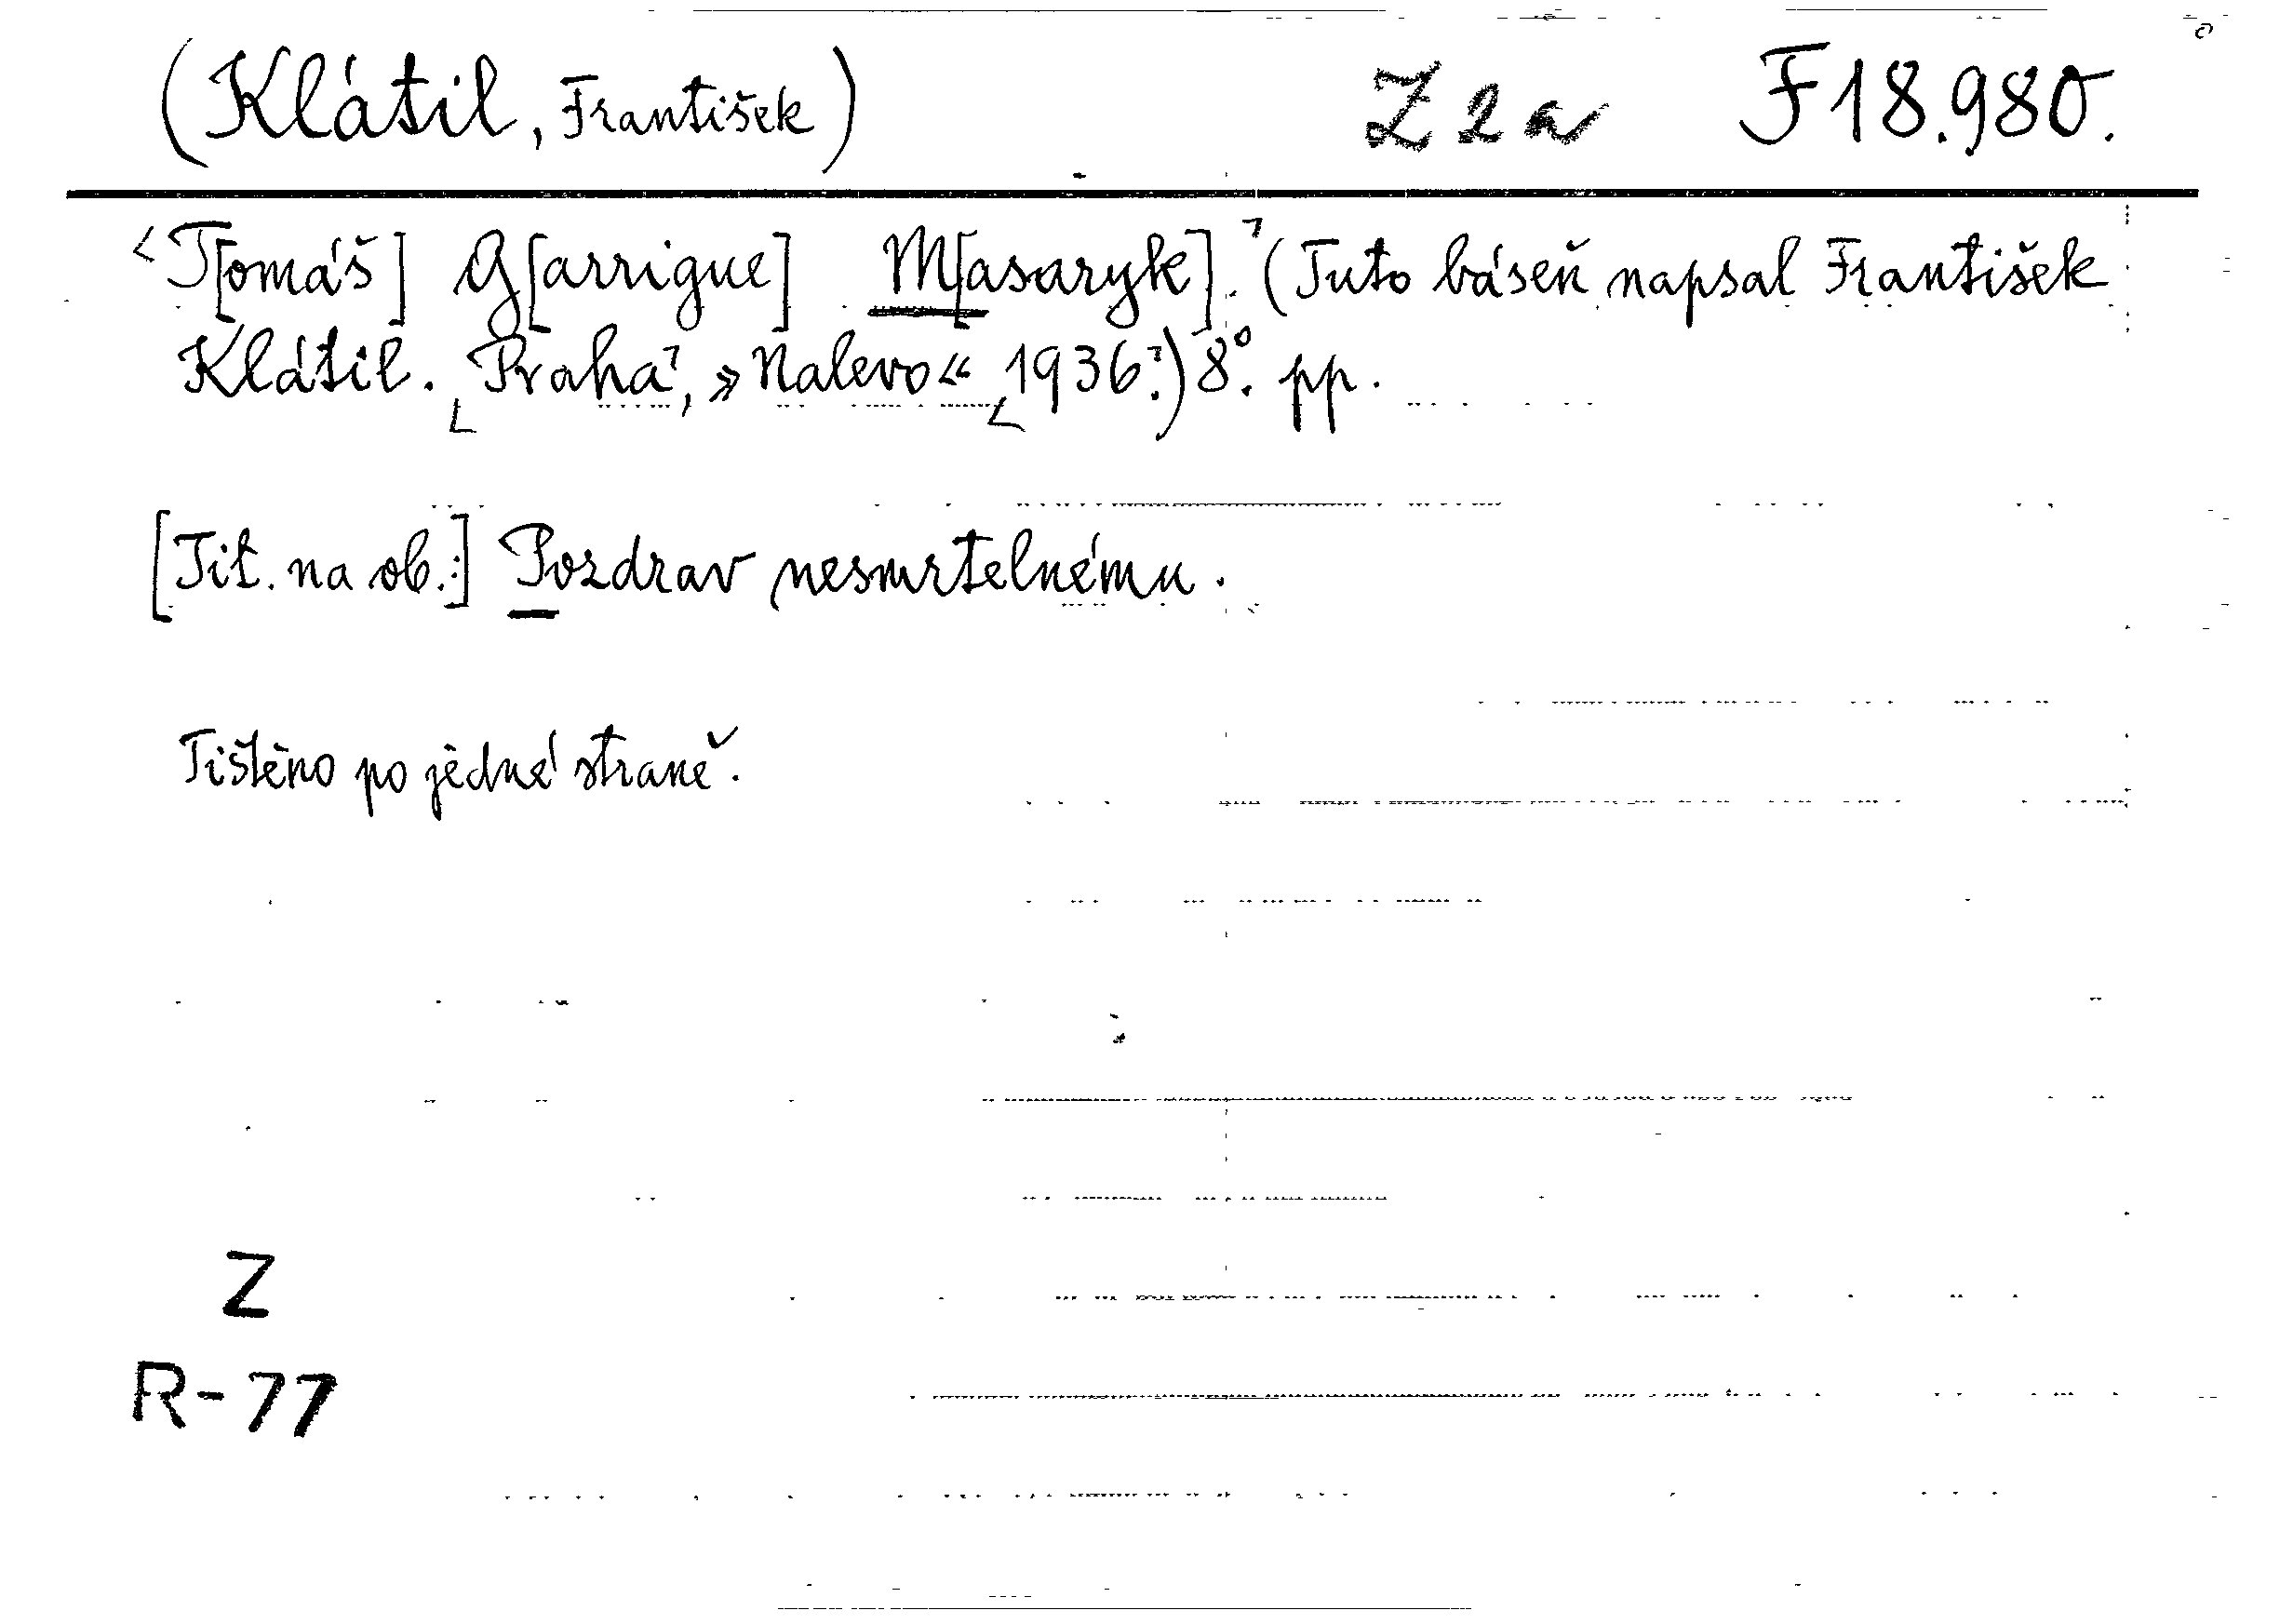 (Klátil, František) Z 2 a F 18.980.
⌞T[omáš] G[arrigue] M[asaryk].⌝ (Tuto báseň napsal František
Klátil. ⌞Praha⌝, »Nalevo« ⌞1936.⌝) 8°. pp.
[Tit. na ob.:] Pozdrav nesmrtelnému.
Tištěno po jedné straně.
Z
R-77